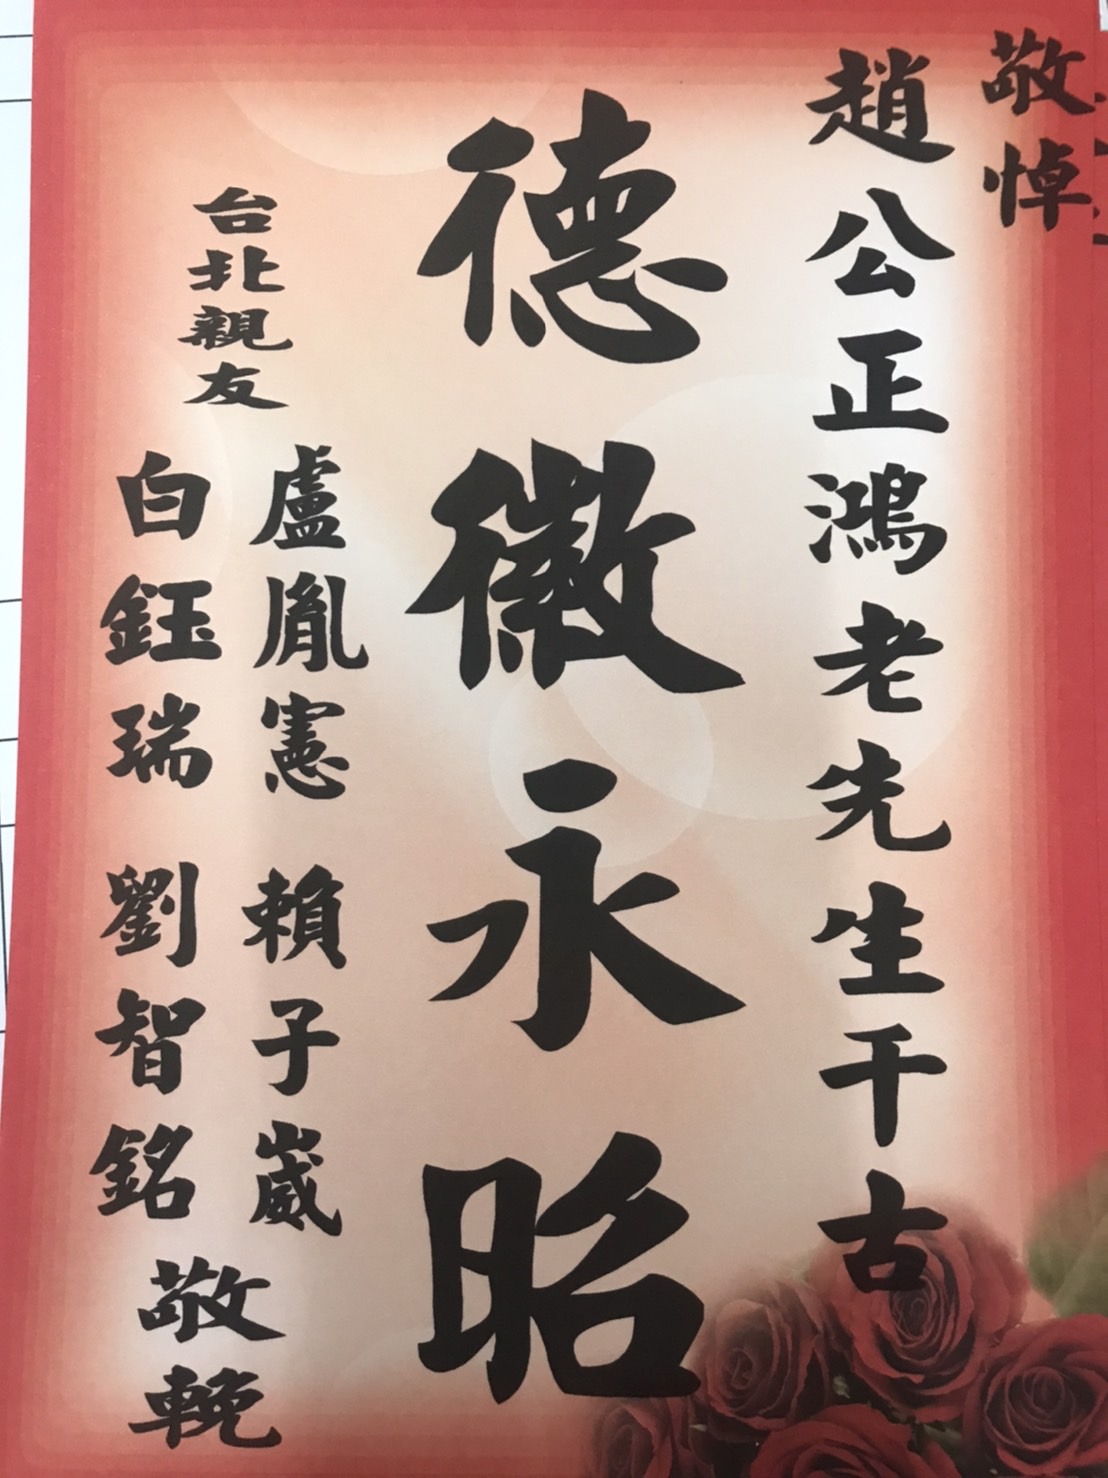 敬悼
趙公正鴻老先生千古
德徽永昭
台北親友
盧胤憲 賴子崴
白鈺瑞 劉智銘
敬輓